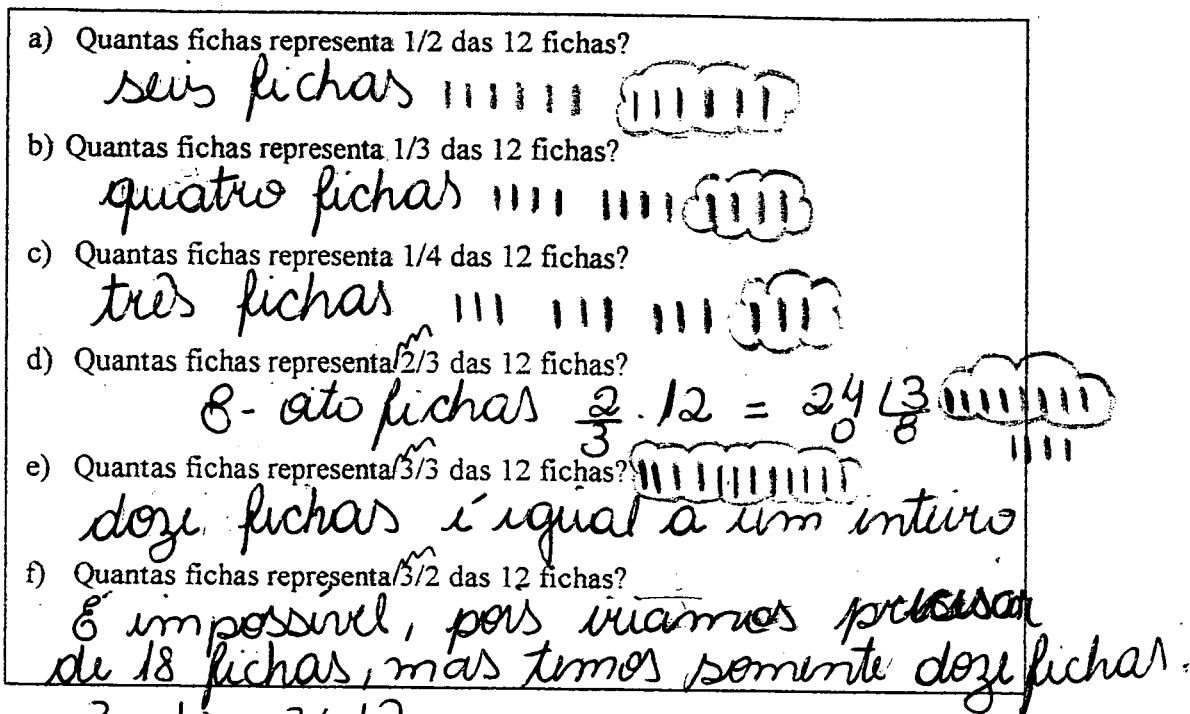 a) Quantas fichas representa 1/2 das 12 fichas?
seis fichas
b) Quantas fichas representa 1/3 das 12 fichas?
quatro fichas
c) Quantas fichas representa 1/4 das 12 fichas?
três fichas
d) Quantas fichas representa 2/3 das 12 fichas?
8 - oito fichas 2/3 . 12 = 24 | 3
0 8
e) Quantas fichas representa 3/3 das 12 fichas?
doze fichas é igual a um inteiro
f) Quantas fichas representa 3/2 das 12 fichas?
É impossível, pois iriamos precisar
de 18 fichas, mas temos somente doze fichas.